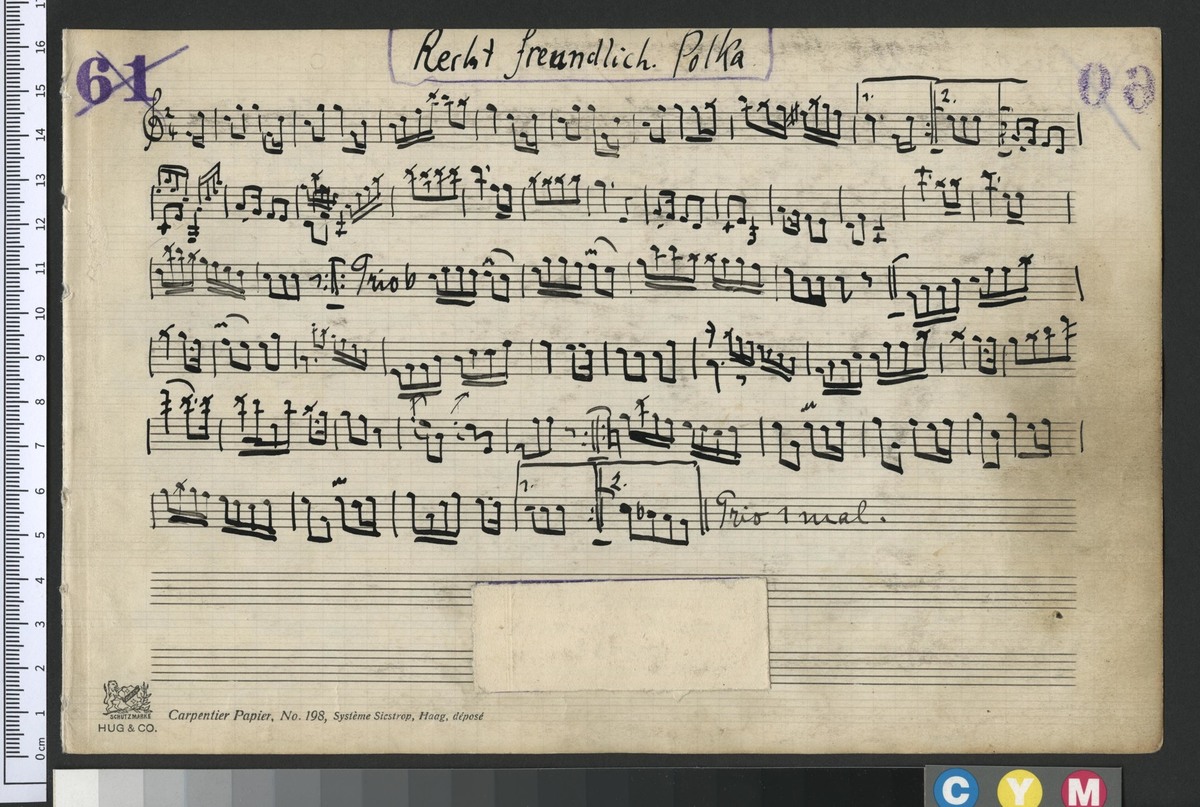 Recht freundlich. Polka
61
60
1.
2.
Trio
1.
2.
Trio 1 mal.
SCHUTZMARKE
HUG & CO.
Carpentier Papier, No. 198, Système Sizstrop, Haag, déposé
17
16
15
14
13
12
11
10
9
8
7
6
5
4
3
2
1
0 cm
C Y M